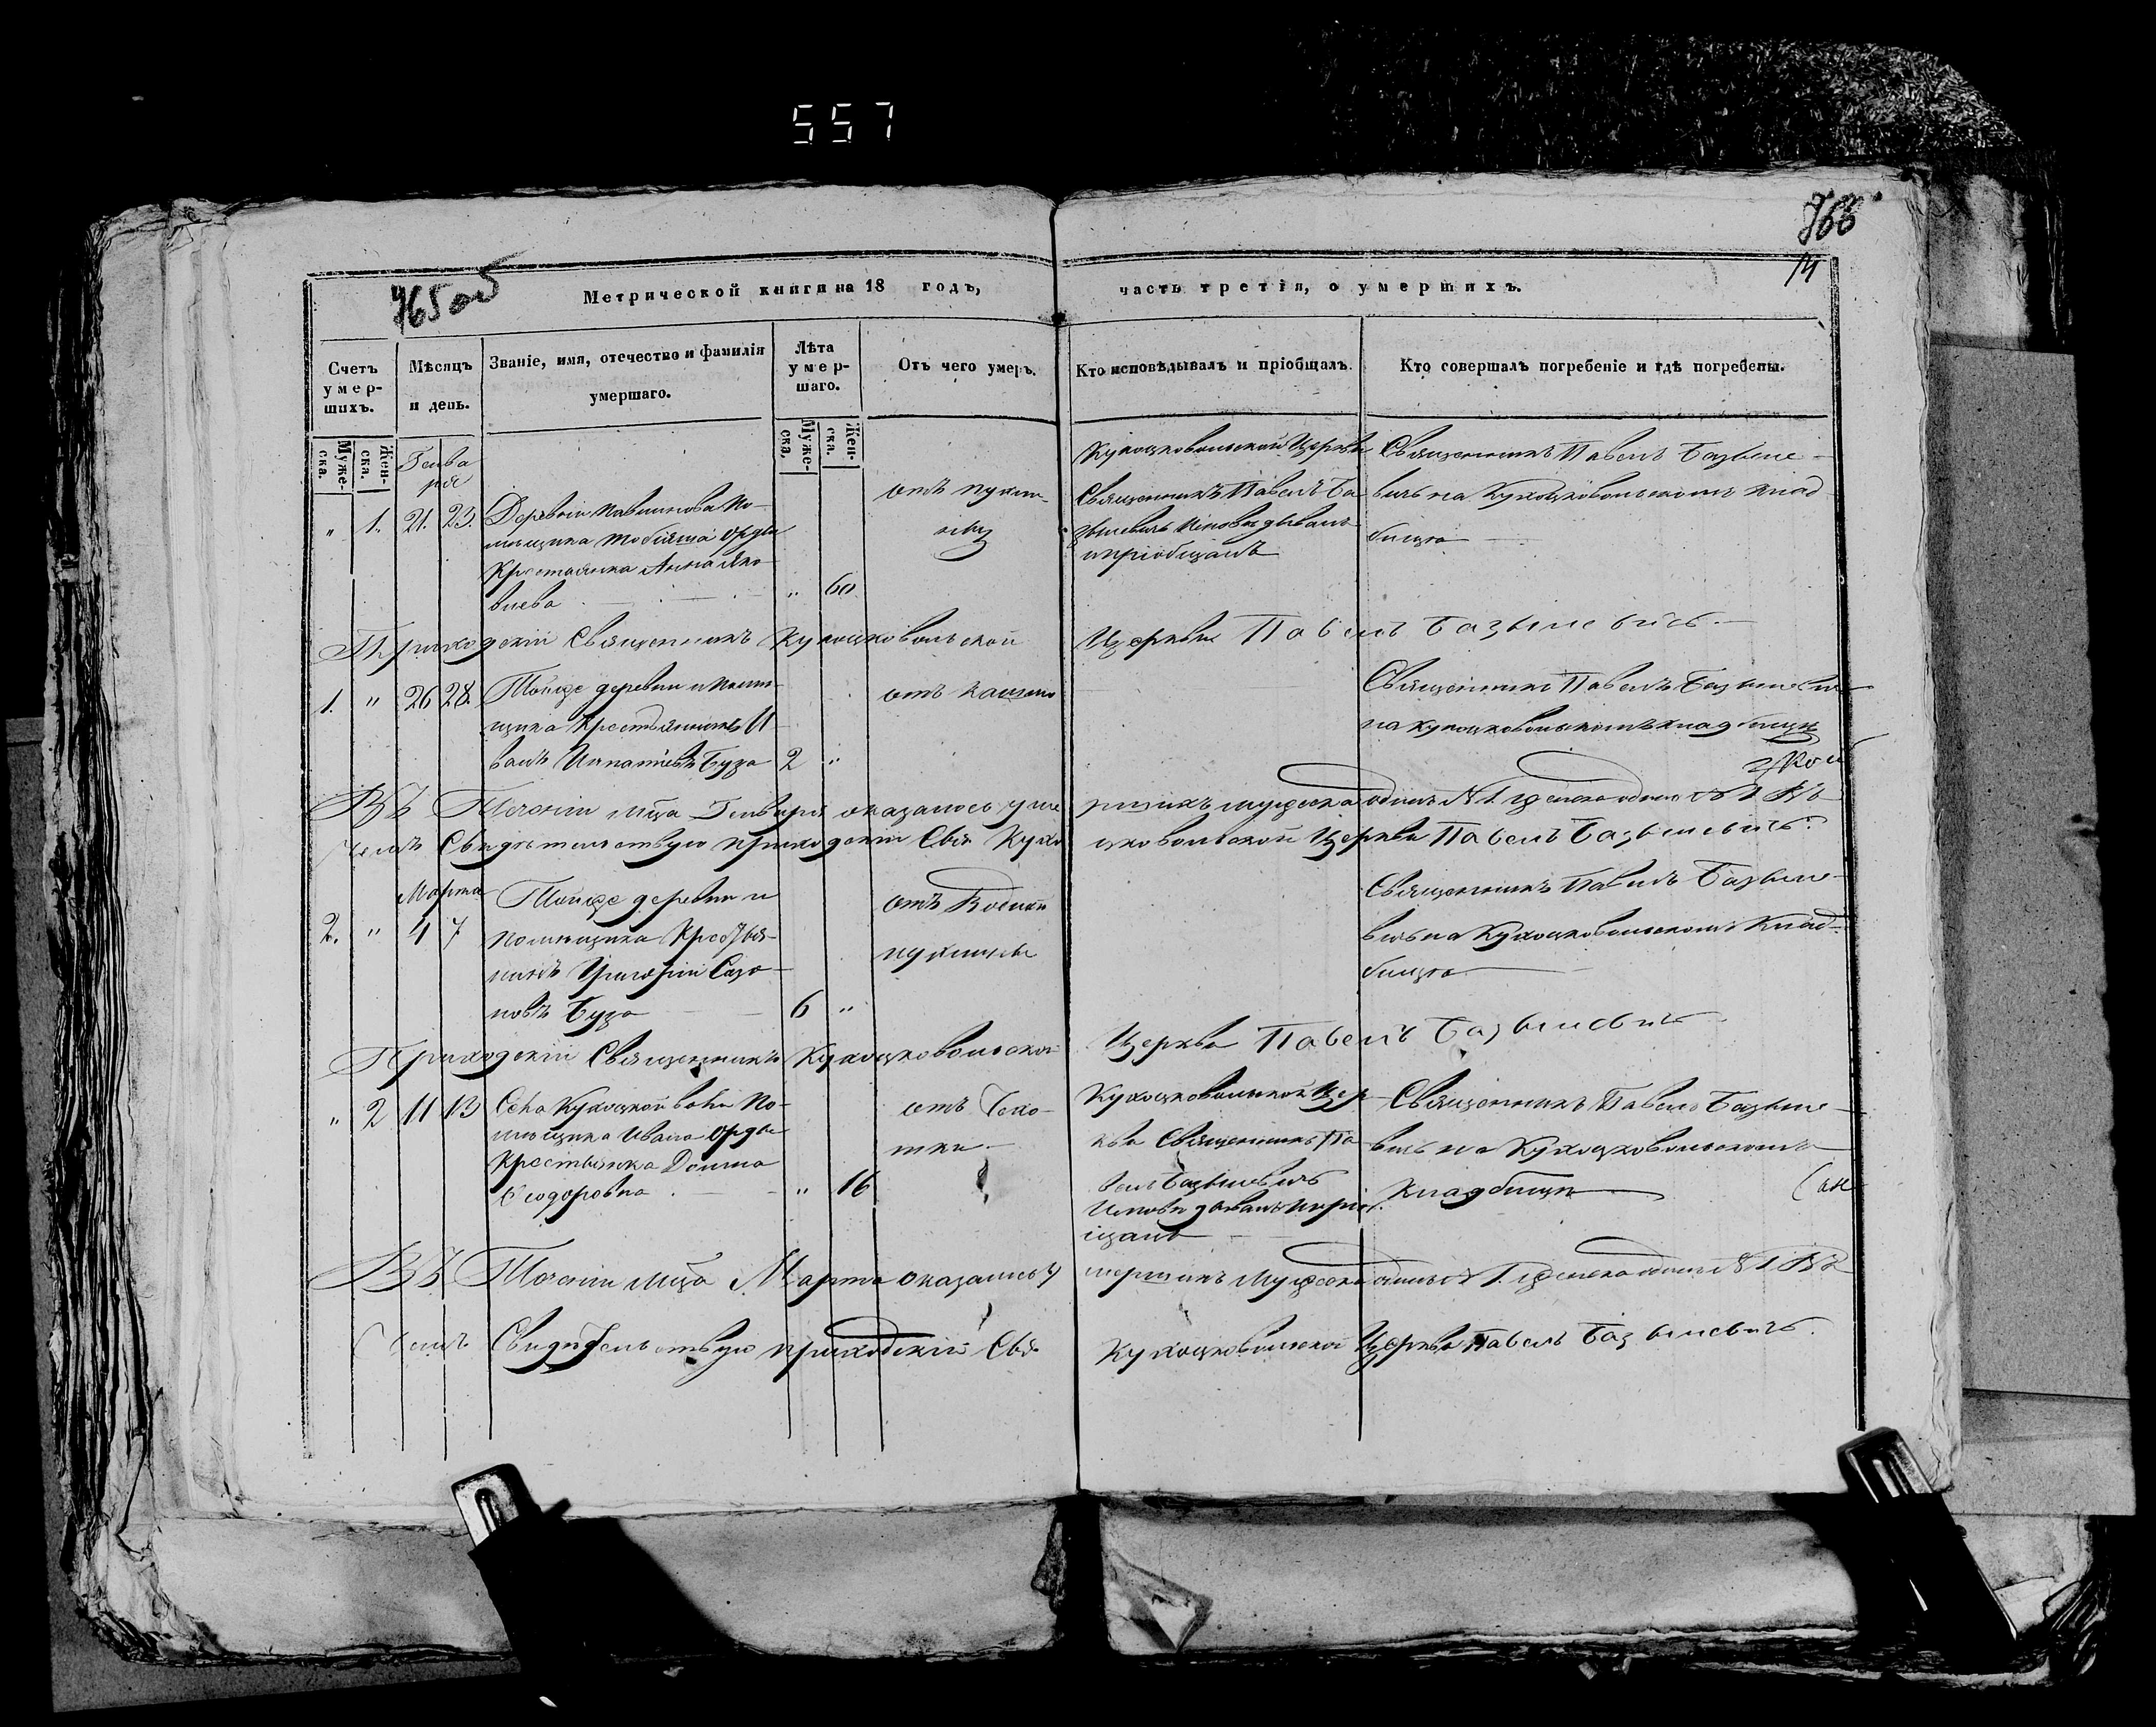 557
766
14
765 об
Метрической книги на 18 годъ, часть третія, о умершихъ.
Счетъ умер-шихъ.
Мѣсяцъ и день.
Званіе, имя, отечество и фамилія умершаго.
Лѣта умер-шаго.
Отъ чего умеръ.
Кто исповѣдывалъ и пріобщалъ.
Кто совершалъ погребеніе и гдѣ погребены.
Муже-ска.
Жен-ска.
Муже-ска.
Жен-ска.
Генва
ря
„ 1. 21. 23.
Деревни По-
мѣщика Орды
Крестьянка Анна Яко
влева
„ 60
отъ
Кухоцковольской Церкви
Священникъ Павелъ Ба
зылевичъ Исповѣдывалъ
и пріобщалъ
Священникъ Павелъ Базыле-
вичъ на Кухоцковольскомъ клад
бищѣ
Приходскій Священникъ Кухоцковольской Церкви Павелъ Базылевичъ.
1. „ 26 28.
Тойже деревни и помѣ-
щика Крестьянинъ И-
ванъ Игнатіевъ Буза
2 „
отъ кашлю
Священникъ Павелъ Базылевичъ
на кухоцковольскомъ кладбищѣ
Въ Теченіи мца Генваря оказалось уме ршихъ мужеска одинъ №1 женска одна №1 Въ
чемъ Свидѣтельствую приходскій Свя Кухо цковольской Церкви Павелъ Базылевичъ.
Марта
2. „ 4 7
Тойже деревни и
помѣщика Крестья-
нинъ Григорій Сазо-
новъ Буза
6 „
отъ
Священникъ Павелъ Базыле-
вичъ на Кухоцковольскомъ Клад-
бищѣ
Приходскій Священникъ Кухоцковольской Церкви Павелъ Базылевичъ
„ 2 11 13
Села Кухоцкой воли По-
мѣщика Ивана Орды
Крестьянка Домна
Ѳеодоровна
„ 16
отъ Сухо-
тки
Кухоцковольской Цер-
кви Священникъ Па
велъ Базылевичъ
Исповѣдывалъ и пріоб
щалъ
Священникъ Павелъ Базыле-
вичъ на Кухоцковольскомъ
Кладбищѣ
Въ Теченіи мца Марта оказалось у мершихъ Мужеска одинъ №1. женска одна №1 Въ
чемъ Свидѣтельствую приходскій Свя Кухоцковольской Церкви Павелъ Базылевичъ.